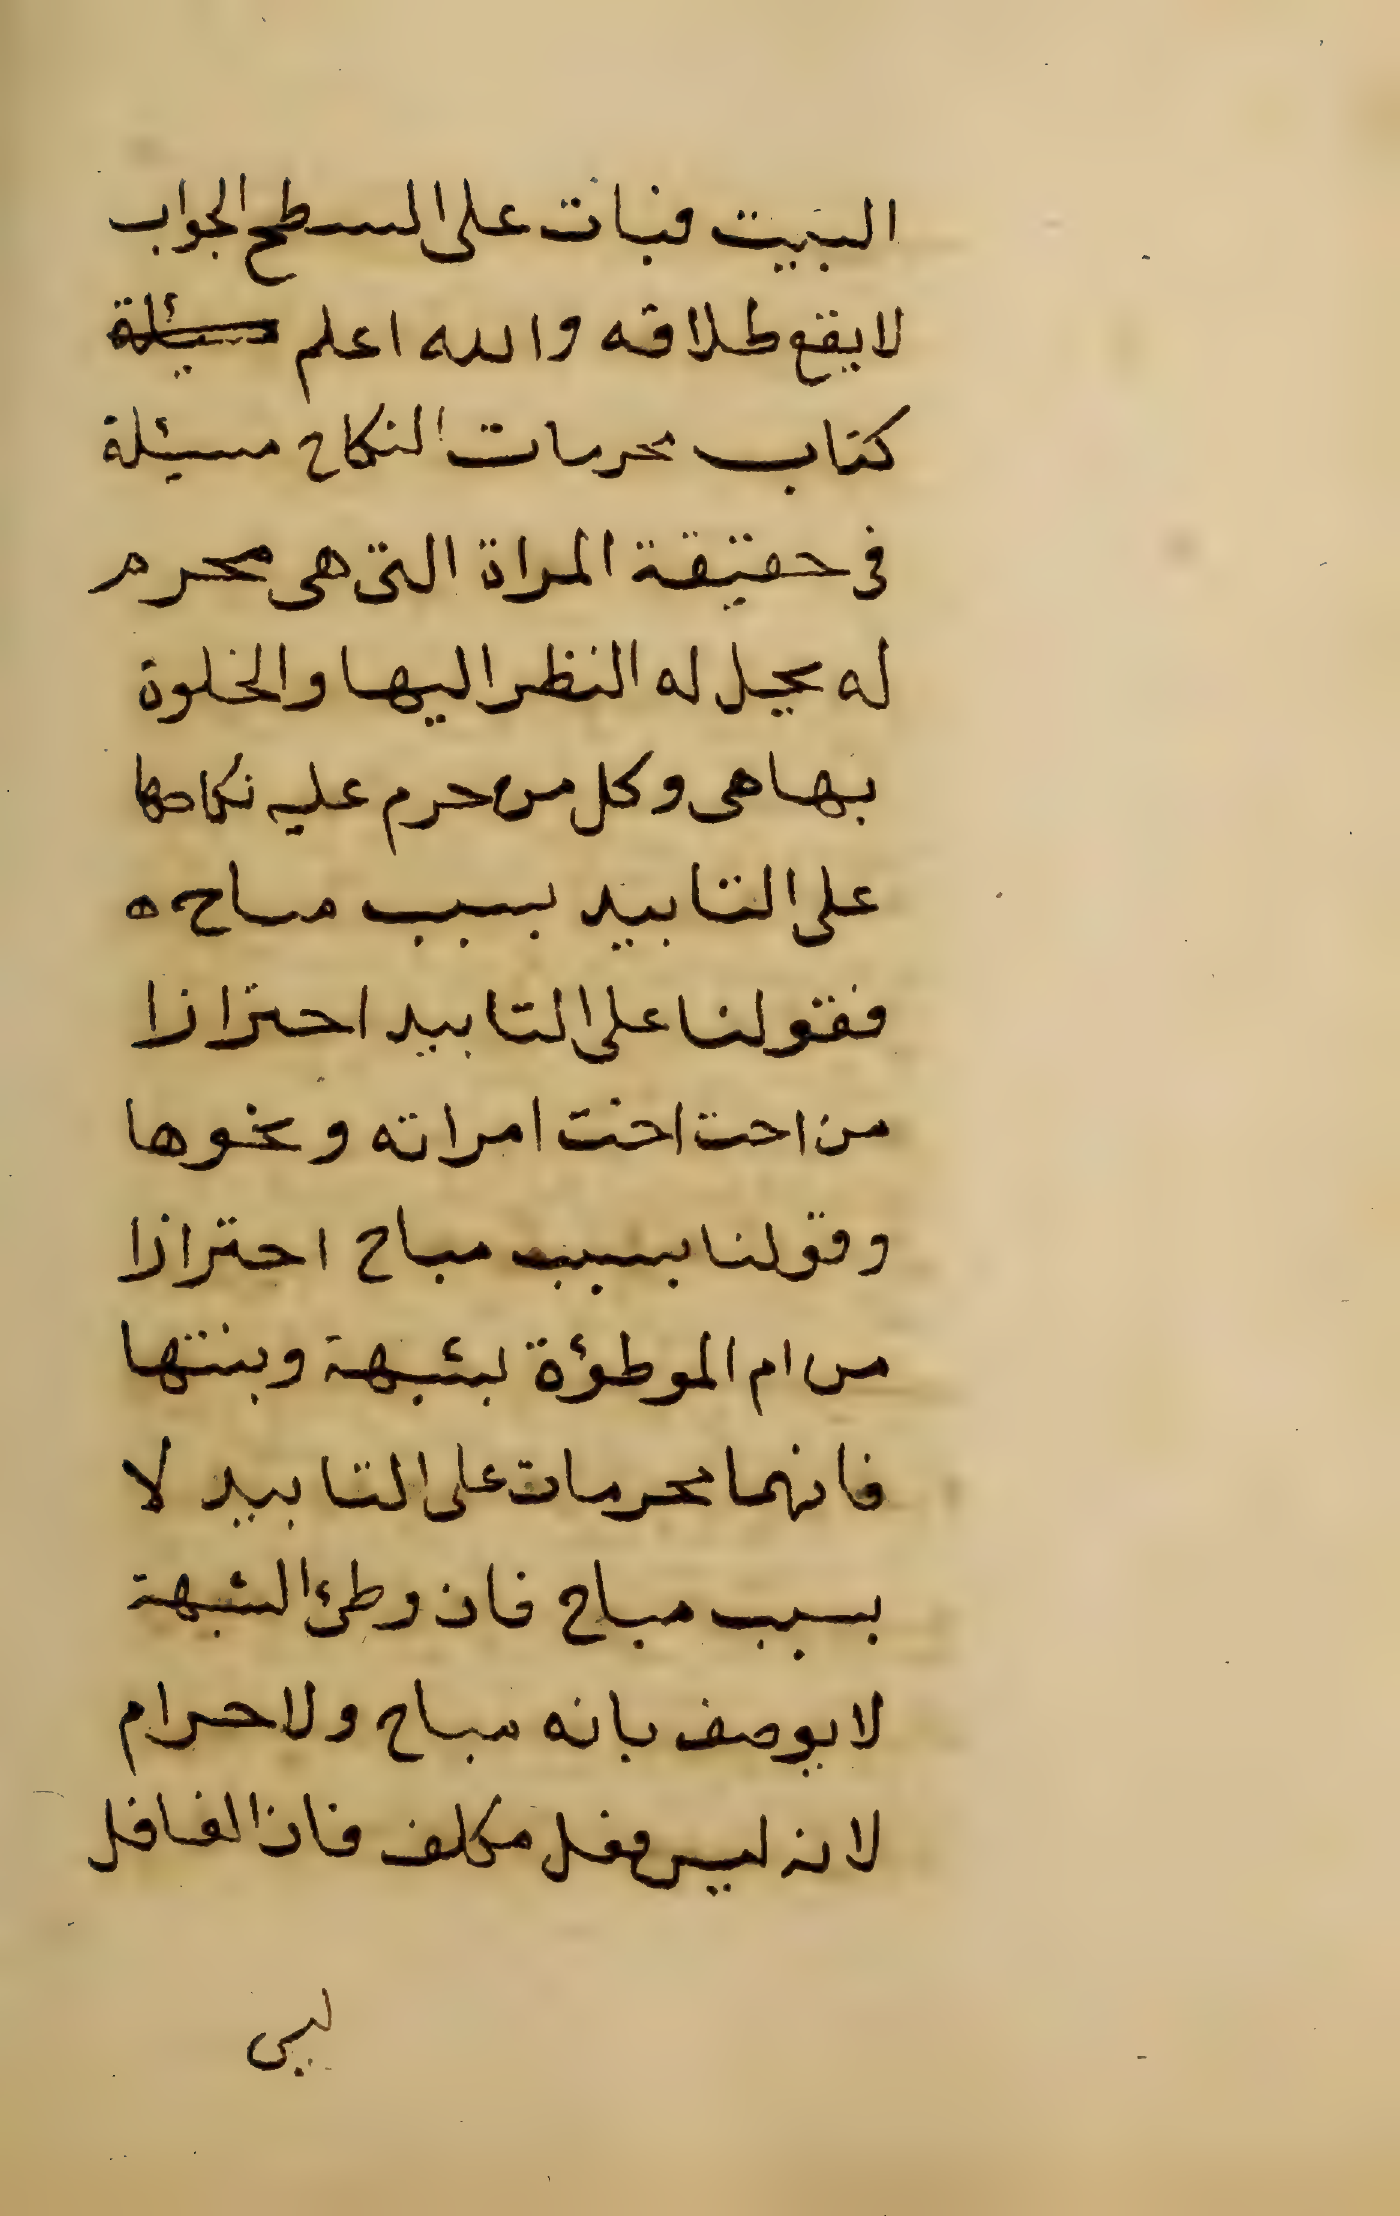 البيت فبات على السطح الجواب
لا يقع طلاقه والله اعلم مسئلة
كتاب محرمات النكاح مسئلة
فى حقيقة المراة التى هى محرم
له يحل له النظر اليها والخلوة
بها هى وكل من حرم عليه نكاحها
على التابيد بسبب مباح ه
فقولنا على التابيد احترازا
من احت اخت امراته ونحوها
وقولنا بسبب مباح احترازا
من ام الموطؤة بشبهة وبنتها
فانهما محرمات على التابيد لا
بسبب مباح فان وطئ الشبهة
لا يوصف بانه مباح ولا حرام
لانه ليس فعل مكلف فان الغافل
ليس